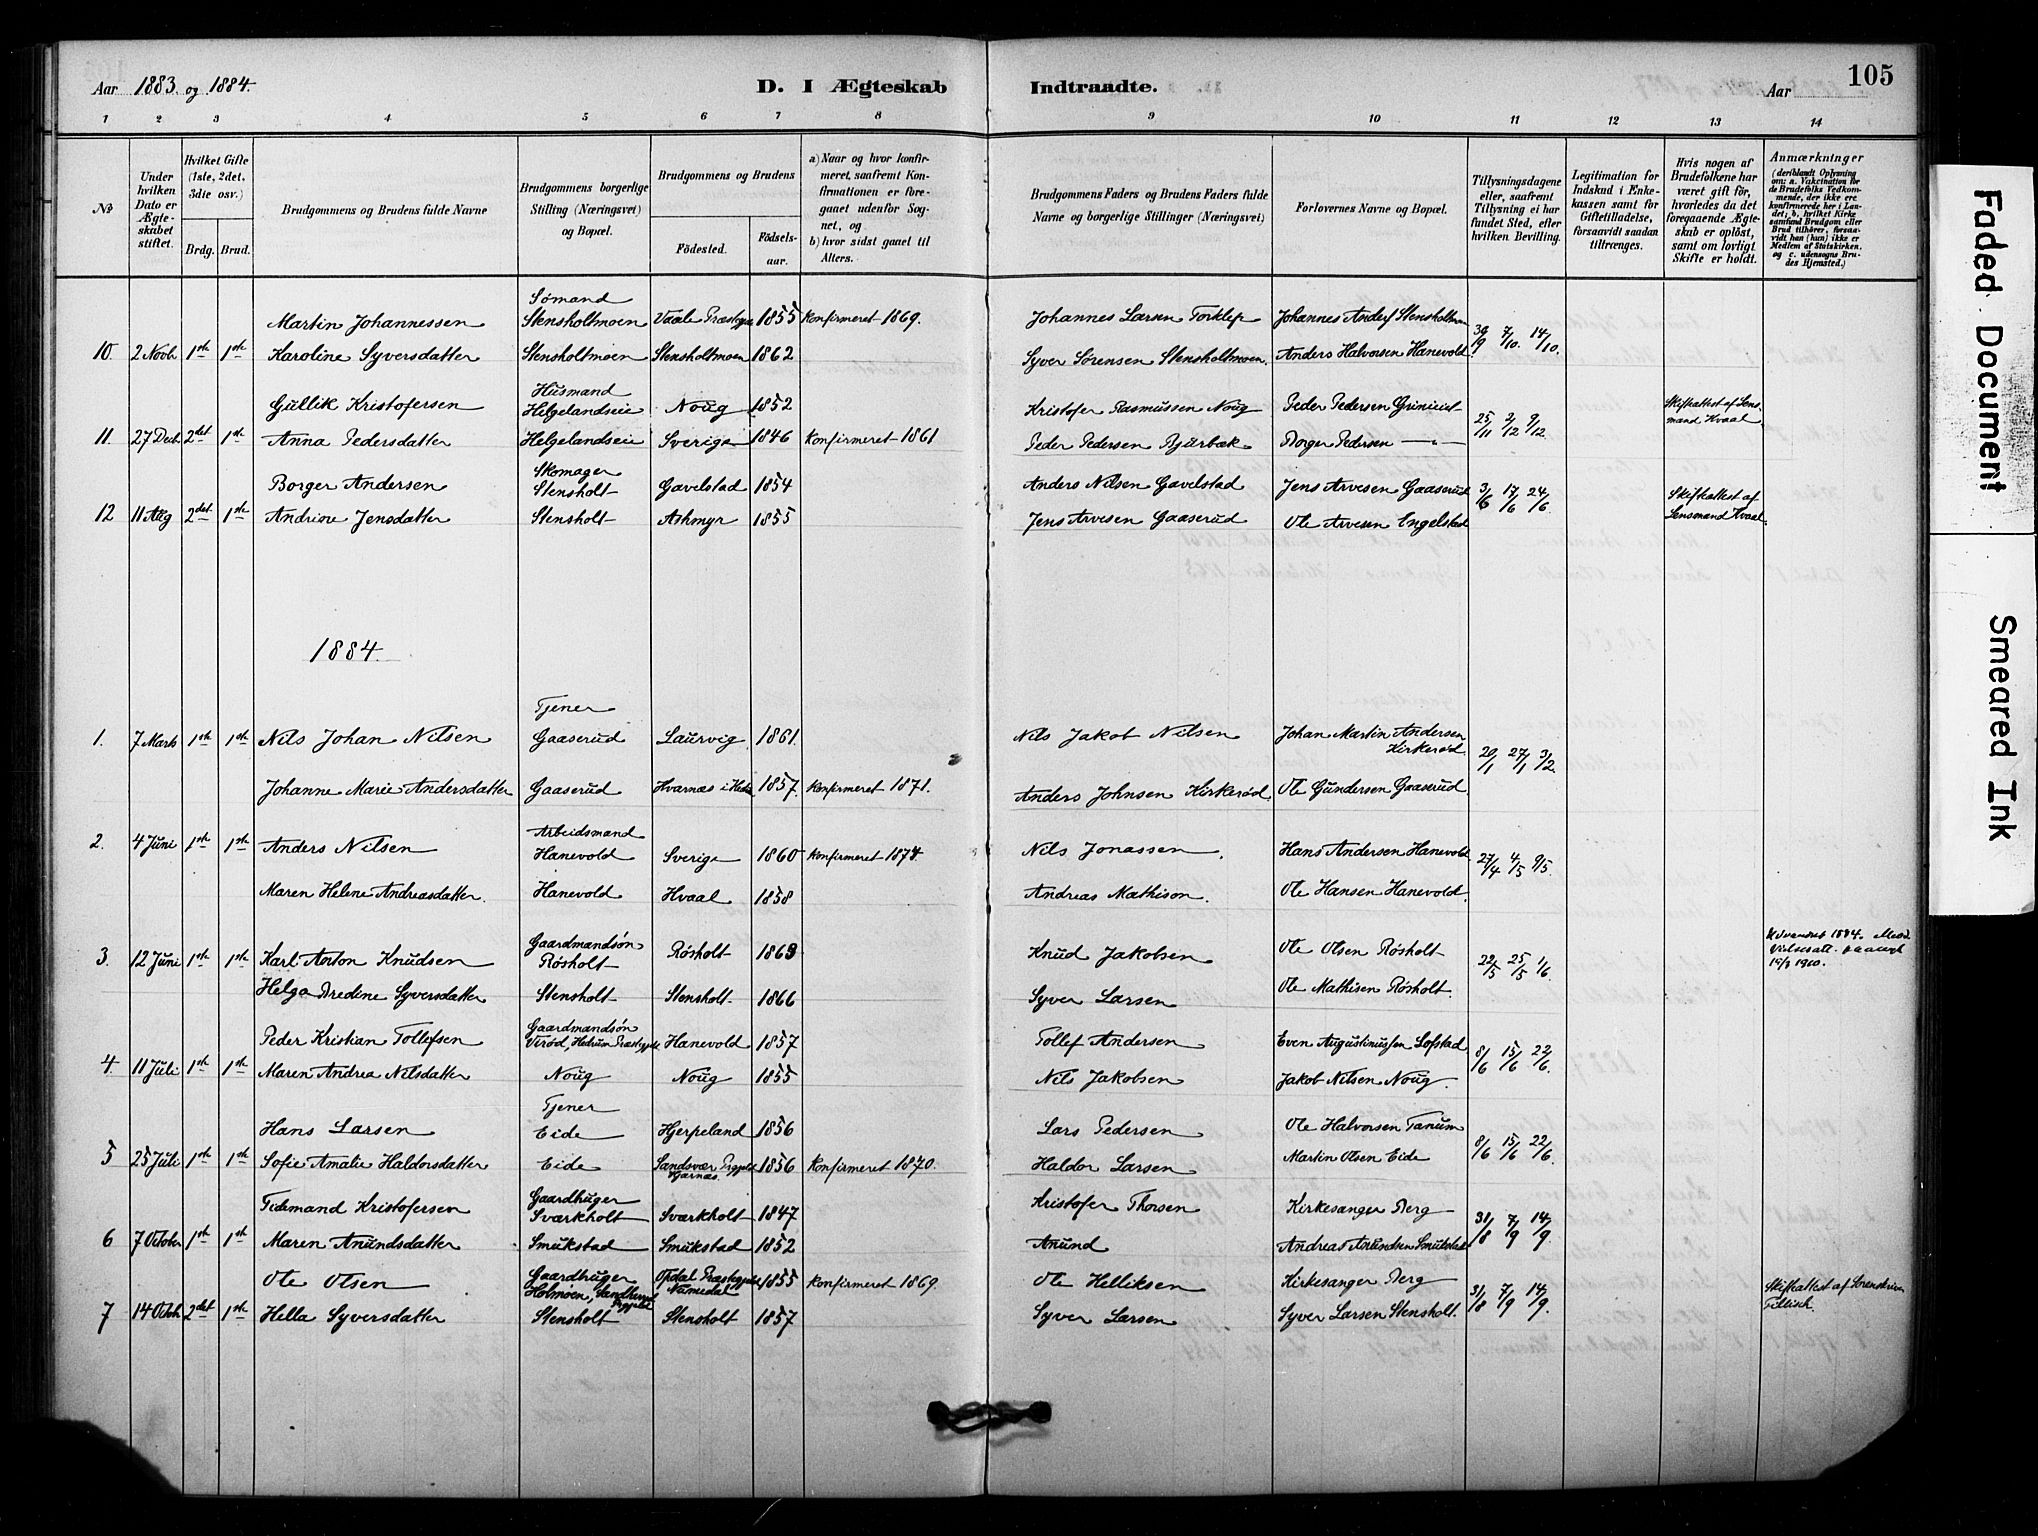 Aar 1883 og 1884.
D. I Ægteskab Indtraadte.
Aar
105
1 2 3 4 5 6 7 8 9 10 11 12 13 14
№
Under hvilken Dato er Ægteskabet stiftet.
Hvilket Gifte (1ste, 2det, 3die osv.)
Brdg. Brud.
Brudgommens og Brudens fulde Navne
Brudgommens borgerlige Stilling (Næringsvei) og Bopæl.
Brudgommens og Brudens
Födested.
Födsels-aar.
a) Naar og hvor konfirmeret, saafremt Konfirmationen er foregaaet udenfor Sognet, og
b) hvor sidst gaaet til Alters.
Brudgommens Faders og Brudens Faders fulde Navne og borgerlige Stillinger (Næringsvei)
Forlovernes Navne og Bopæl.
Tillysningsdagene eller, saafremt Tillysning ei har fundet Sted, efter hvilken Bevilling.
Legitimation for Indskud i Enkekassen samt for Giftetilladelse, forsaavidt saadan tiltrænges.
Hvis nogen af Brudefolkene har været gift för, hvorledes da det foregaaende Ægteskab er oplöst, samt om lovligt Skifte er holdt.
Anmærkninger (deriblandt Oplysning om: a. Vakcination for de Brudefolks Vedkommende, der ikke ere konfirmerede her i Landet; b. hvilket Kirkesamfund Brudgom eller Brud tilhörer, forsaavidt han (hun) ikke er Medlem af Statskirken, og c. udensogns Brudes Hjemsted.)
Sømand
Martin Johannessen Stensholtmoen Vaale 1855 Konfirmeret 1869. Johannes Larsen Torklep Johannes Anders Stensholtmoen
10. 2 Novb 1ste 1ste Karoline Syversdatter Stensholtmoen Stensholtmoen 1862 Syver Sørensen Stensholtmoen. Anders Halvorsen Hanevold 30/9 7/10. 14/10.
Husmand
Gullik Kristofersen Helgelandseie Noug 1852 Kristofer Rasmussen Noug Peder Pedersen Skifteattest af Lensmand Hvaal
11. 27 Decb. 2det 1ste Anna Pedersdatter Helgelandseie Sverige 1846 Konfirmeret 1861 Peder Pedersen Bjurbæk Borger Pedersen —"— 25/11 2/12 9/12.
Skomager
Borger Andersen Stensholt Gavelstad 1854 Anders Nilsen Gavelstad Jens Arvesen Gaaserud Skifteattest af Lensmand Hvaal.
12 11 Aug 2det 1ste Andrine Jensdatter Stensholt Askmyr 1855 Jens Arvesen Gaaserud Ole Arvesen Engelstad 3/6 17/6 24/6.
1884.
Tjener
1. 7 Marts 1ste 1ste Nils Johan Nilsen Gaaserud Laurvig 1861 Nils Jakob Nilsen Johan Martin Andersen Kirkerød 20/1 27/1 3/2.
Johanne Marie Andersdatter Gaaserud Hvarnæs i Hedr. 1857. Konfirmeret 1871. Anders Johnsen Kirkerød. Ole Gundersen Gaaserud
Arbeidsmand
2. 4 Juni 1ste 1ste Anders Nilsen Hanevold Sverige 1860 Konfirmeret 1874 Nils Jonassen. Hans Andersen Hanevold 27/4 4/5 9/5.
Maren Helene Andreasdatter. Hanevold Hvaal 1858 Andreas Mathison. Ole Hansen Hanevold.
Gaardmandsøn
3. 12 Juni 1ste 1ste Karl Anton Knudsen Røsholt Røsholt 1863 Knud Jakobsen Ole Olsen Røsholt 22/5 25/5 1/6 Udvandret 1894.
Helga Bredine Syversdatter Stensholt Stensholt 1866 Syver Larsen Ole Mathisen Røsholt.
Gaardmandsøn
Peder Kristian Tollefsen Virød, Hedrum Præstegjeld Hanevold 1857 Tollef Andersen Even Augustinussen Lofstad
4 11 Juli 1ste 1ste Maren Andrea Nilsdatter Noug Noug 1855 Nils Jakobsen Jakob Nilsen Noug. 8/6 15/6 22/6.
Tjener
Hans Larsen Eide Hjerpeland 1856 Lars Pedersen Ole Halvorsen Tanum
5 25 Juli 1ste 1ste Sofie Amalie Haldorsdatter Eide Sandsvær 1856 Konfirmeret 1870. Haldor Larsen Martin Olsen Eide 8/6 15/6 22/6.
Gaardbruger
Tidemand Kristofersen Sværkholt Sværkholt 1847 Kristofer Thorsen Kirkesanger Berg
6 7 October 1ste 1ste Maren Anundsdatter Smukstad Smukstad 1852 Anund Andreas Anundsen Smukstad 31/8 7/9 14/9.
Gaardbruger
Ole Olsen Holmoen, Opdal Præstegjeld Numedal 1855 Konfirmeret 1869. Ole Helliksen Kirkesanger Berg Skifteattest af Sorenskriver
7 14 Octob 2det 1ste Hella Syversdatter Stensholt Stensholt 1857 Syver Larsen Syver Larsen Stensholt. 31/8 7/9 14/9.
Faded Document
Smeared Ink